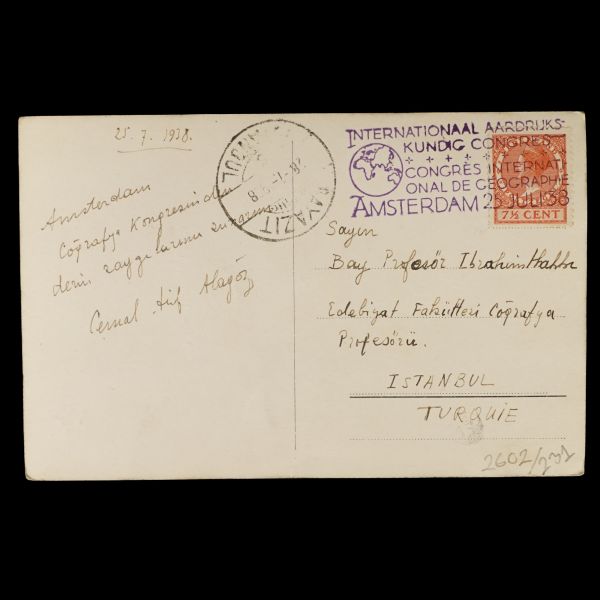 25. 7. 1938.
Amsterdam
Coğrafya Kongresinden
derin saygılarımı sunarım
Cemal Arif Alagöz
BAYAZIT
INTERNATIONAAL AARDRIJKS-
KUNDIG CONGRES
CONGRÈS INTERNATI
ONAL DE GEOGRAPHIE
AMSTERDAM 25 JULI 38
7½ CENT
Sayın
Bay Profesör Ibrahim Hakkı
Edebiyat Fakülteri Coğrafya
Profesörü.
ISTANBUL
TURQUIE
2602/